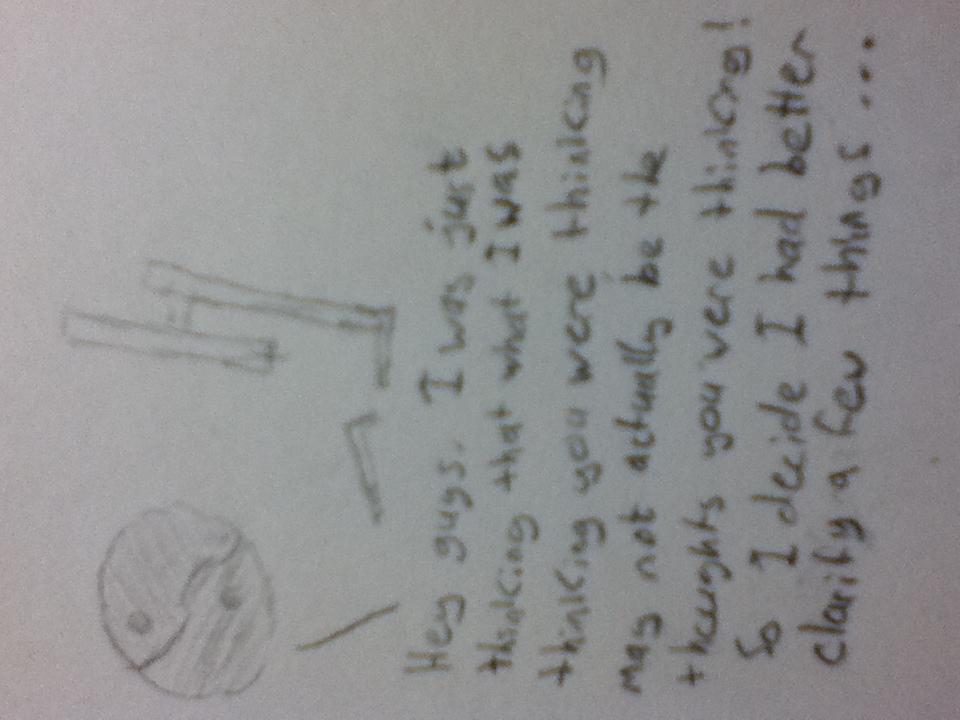 Hey guys. I was just
thinking that what I was
thinking you were thinking
may not actually be the
thoughts you were thinking!
So I decide I had better
clarify a few things...